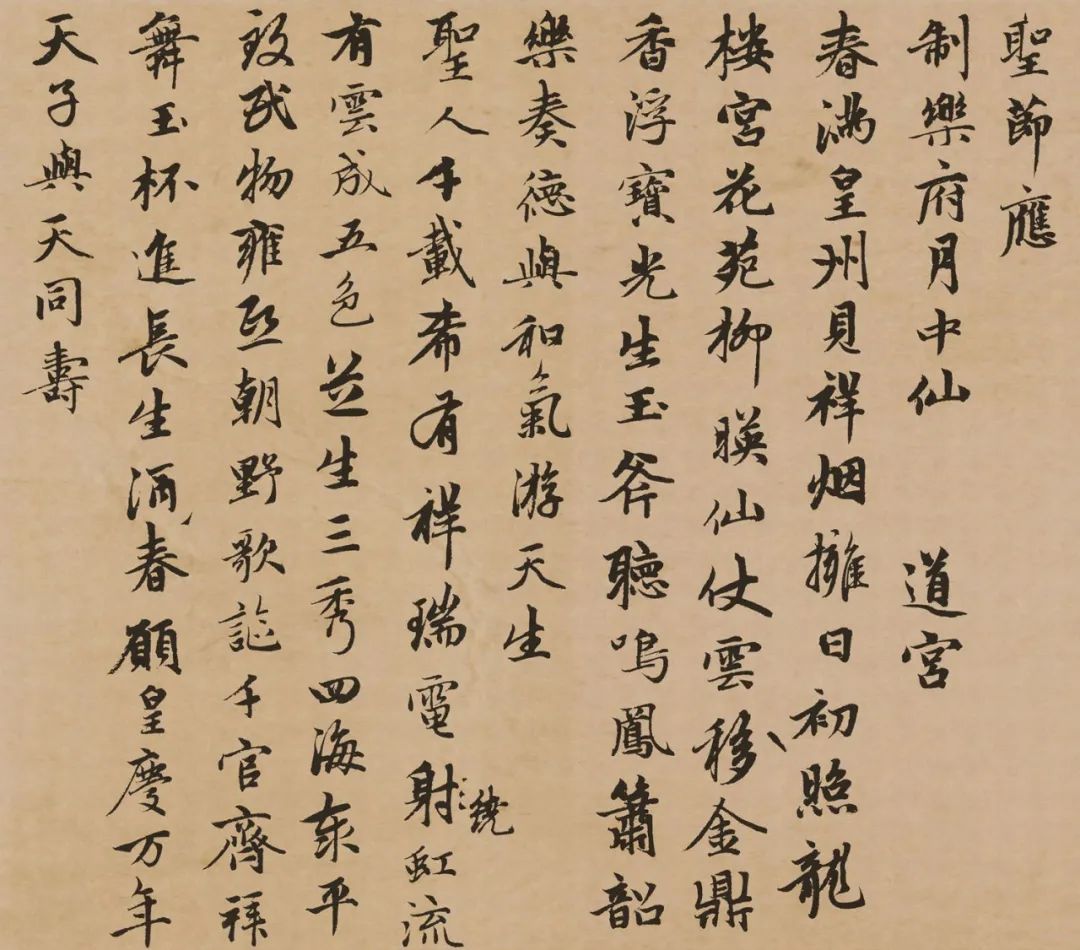 聖節應
制樂府月中仙　道宮
春滿皇州見祥烟擁日初照龍
楼宮花苑柳暎仙仗雲移金鼎
香浮寶光生玉斧聽鳴鳳簫韶
樂奏德與和氣游天生
聖人千載希有祥瑞電射繞虹流
有雲成五色並生三秀四海來平
致民物雍熙朝野歌謳千官齊拜
舞玉杯進長生酒春願皇慶万年
天子與天同壽